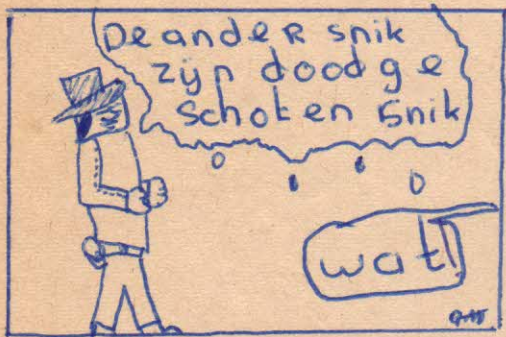 De ander snik
zijn doodge
schoten snik
wat!